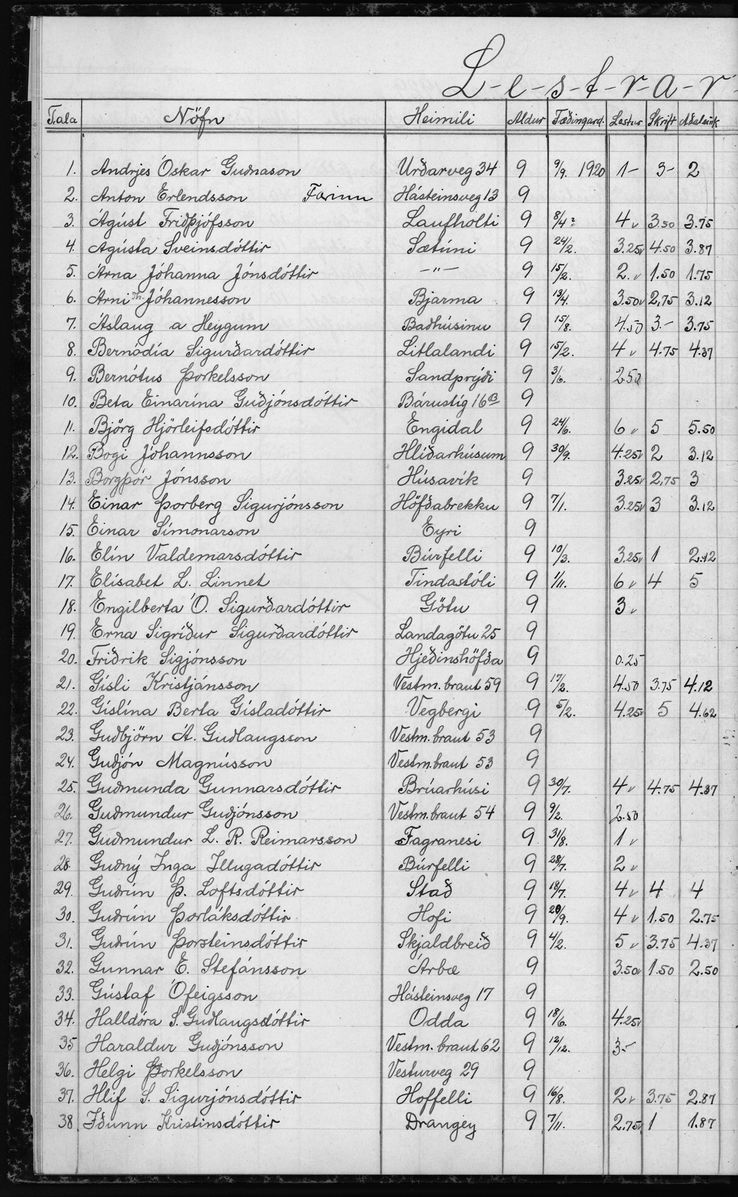 L-e-s-t-r-a-r-
Tala Nöfn Heimili Aldur Fæðingard. Lestur Skrift Aðaleink
1. Andrjes Óskar Guðnason Urðarveg 34 9 9/9. 1920 1- 3- 2
2. Anton Erlendsson Farinn Hásteinsveg 13 9
3. Ágúst Friðþjófsson Laufholti 9 8/4 4 v 3.50 3.75
4. Ágústa Sveinsdóttir Sætúni 9 24/2. 3.25v 4.50 3.87
5. Árna Jóhanna Jónsdóttir -"- 9 15/2. 2.v 1.50 1.75
6. Árni Jóhannesson Bjarma 9 13/4. 3.50v 2,75 3.12
7. Áslaug a Heygum Baðhúsinu 9 15/8. 4.50 3.- 3.75
8. Bernódía Sigurðardóttir Litlalandi 9 15/2. 4 v 4.75 4.37
9. Bernótus Þorkelsson Sandprýði 9 3/6. 2.50
10. Beta Einarína Guðjónsdóttir Bárustig 16B 9
11. Björg Hjörleifsdóttir Engidal 9 24/6. 6 v 5 5.50
12. Bogi Jóhannsson Hlíðarhúsum 9 30/9. 4.25v 2 3.12
13. Borgþór Jónsson Húsavík 9 3.25v 2,75 3
14. Einar Þorberg Sigurjónsson Höfðabrekku 9 7/1. 3.25v 3 3.12
15. Einar Símonarson Eyri 9
16. Elín Valdemarsdóttir Búrfelli 9 10/3. 3.25v 1 2.12
17. Elísabet L. Linnet Tindastóli 9 1/11. 6 v 4 5
18. Engilberta Ó. Sigurðardóttir Götu 9 3 v
19. Erna Sigríður Sigurðardóttir Landagötu 25 9
20. Friðrik Sigjónsson Hjeðinshöfða 9 0.25
21. Gísli Kristjánsson Vestm.braut 59 9 17/2. 4.50 3.75 4.12
22. Gíslína Berta Gísladóttir Vegbergi 9 5/2. 4.25v 5 4.62
23. Guðbjörn A. Guðlaugsson Vestm.braut 53 9
24. Guðjón Magnússon Vestm.braut 53 9
25. Guðmunda Gunnarsdóttir Brúarhúsi 9 30/7. 4 v 4.75 4.37
26. Guðmundur Guðjónsson Vestm.braut 54 9 9/2. 2.50
27. Guðmundur L. R. Reimarsson Fagranesi 9 31/8. 1 v
28. Guðný Inga Illugadóttir Búrfelli 9 28/7. 2 v
29. Guðrún Þ. Loftsdóttir Stað 9 18/7. 4 v 4 4
30. Guðrún Þorláksdóttir Hofi 9 20/9. 4 v 1.50 2.75
31. Guðrún Þorsteinsdóttir Skjaldbreið 9 4/2. 5 v 3.75 4.37
32. Gunnar E. Stefánsson Árbæ 9 3.50v 1.50 2.50
33. Gústaf Ófeigsson Hásteinsveg 17 9
34. Halldóra S. Guðlaugsdóttir Odda 9 18/6. 4.25v
35 Haraldur Guðjónsson Vestm.braut 62 9 12/12. 3-
36. Helgi Þorkelsson Vesturveg 29 9
37. Hlíf S. Sigurjónsdóttir Hoffelli 9 16/8. 2 v 3.75 2.87
38 Iðunn Kristinsdóttir Drangey 9 7/11. 2.75v 1 1.87